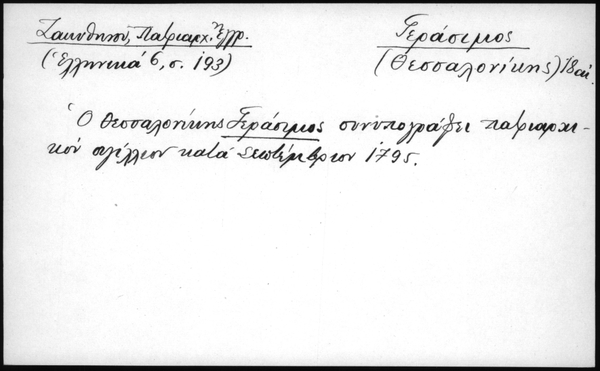 Ζακυθηνοῦ, Πατριαρχ. Ἔγγρ.
(Ἑλληνικά 6, σ. 193)
Γεράσιμος
(Θεσσαλονίκης) 18 αἰ.
Ὁ Θεσσαλονίκης Γεράσιμος συνυπογράφει πατριαρχι-
κόν σιγίλλιον κατά Σεπτέμβριον 1795.